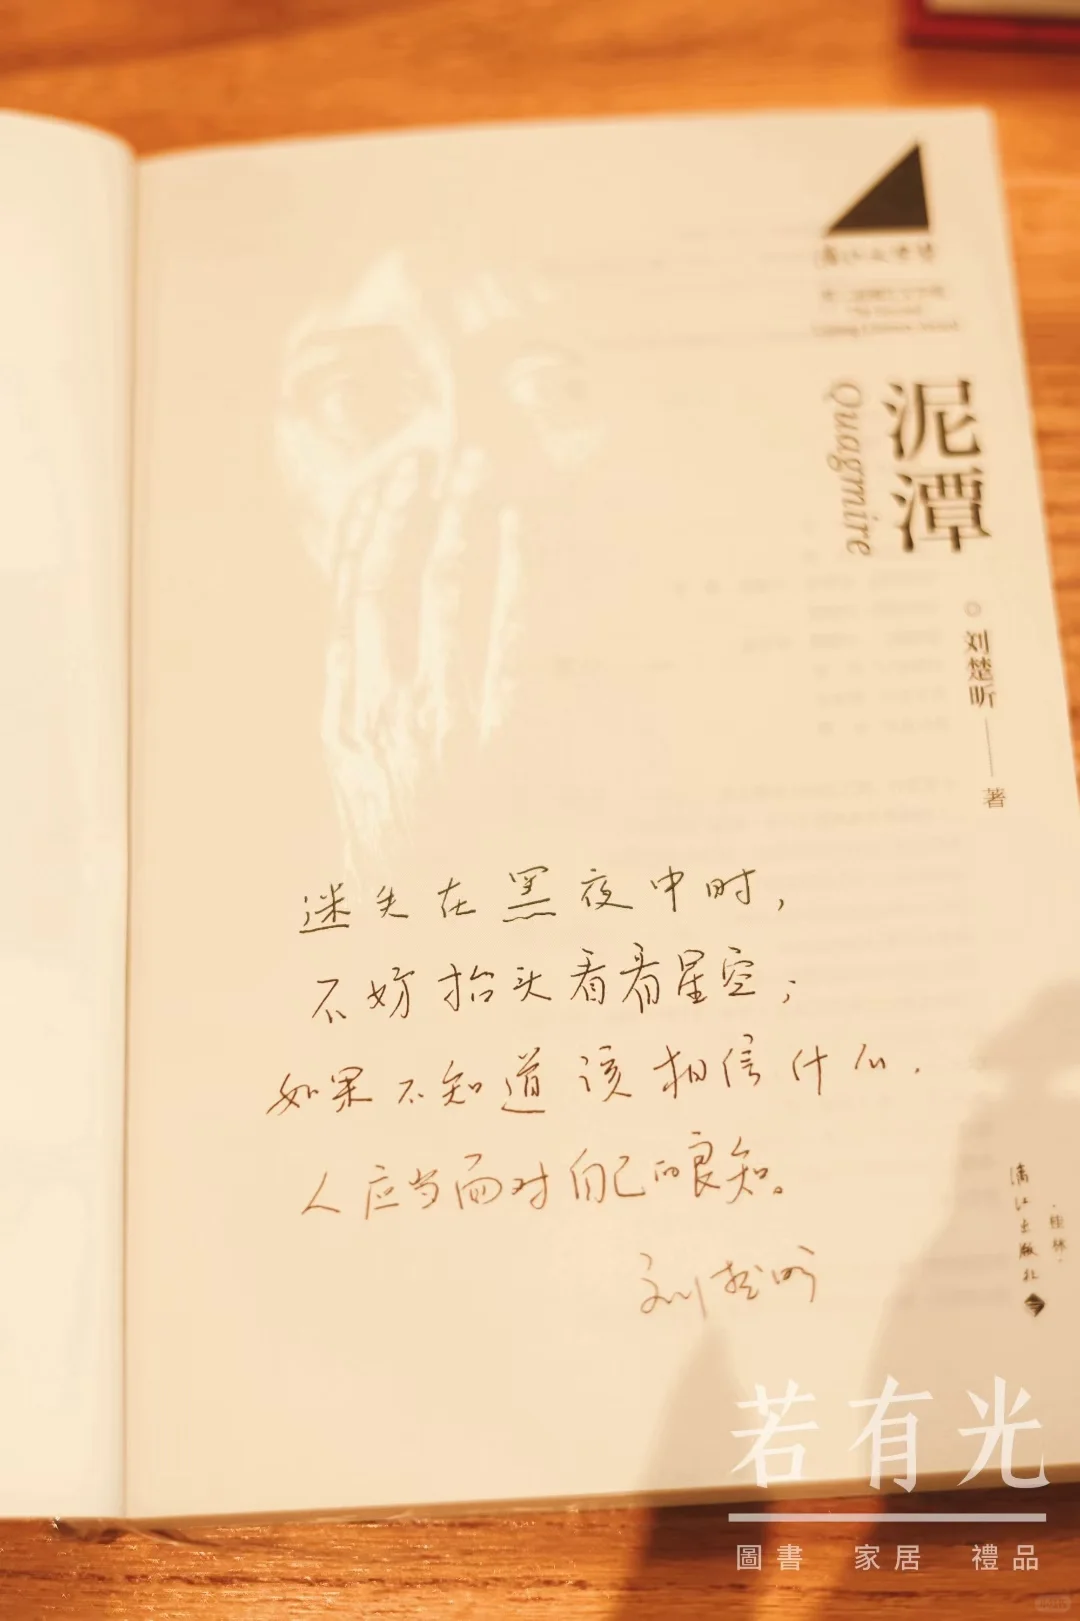 泥潭
Quagmire
刘楚昕
著
迷失在黑夜中时,
不妨抬头看看星空;
如果不知道该相信什么,
人应当面对自己的良知。
刘楚昕
漓江出版社
·桂林·
若有光
圖書 家居 禮品